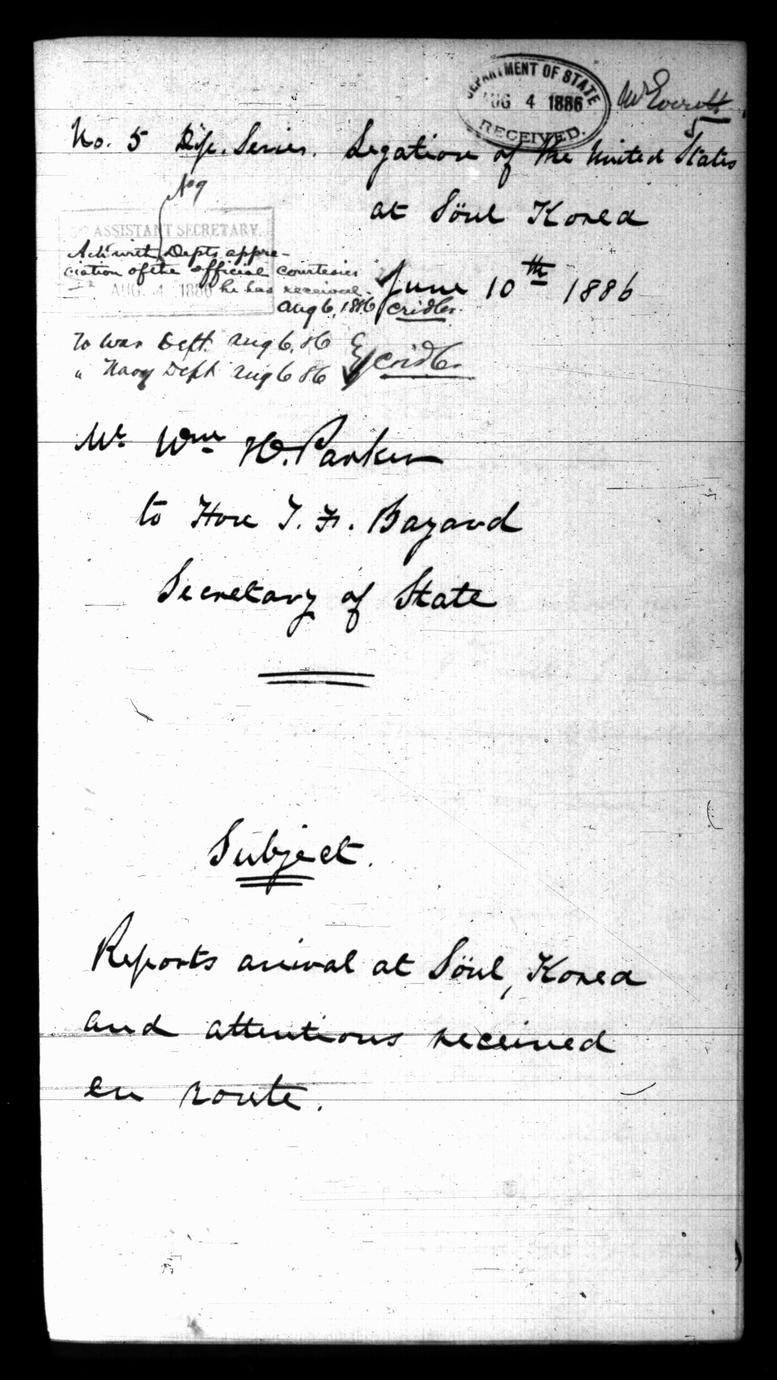 DEPARTMENT OF STATE
AUG 4 1886
RECEIVED.
Mr Everett
No. 5 Dip. Series. Legation of the United States
at Söul Korea
No 9
ASSISTANT SECRETARY.
AUG. 4 1886
Ack with Depts appre-
ciation of the official courtesies
he has received.
Aug 6, 1886 Cridler.
June 10th 1886
To War Dept. Aug 6, 86
" Navy Dept Aug 6 86 Cridler
Mr Wm H. Parker
to Hon T. F. Bayard
Secretary of State
Subject.
Reports arrival at Söul, Korea
and attentions received
en route.